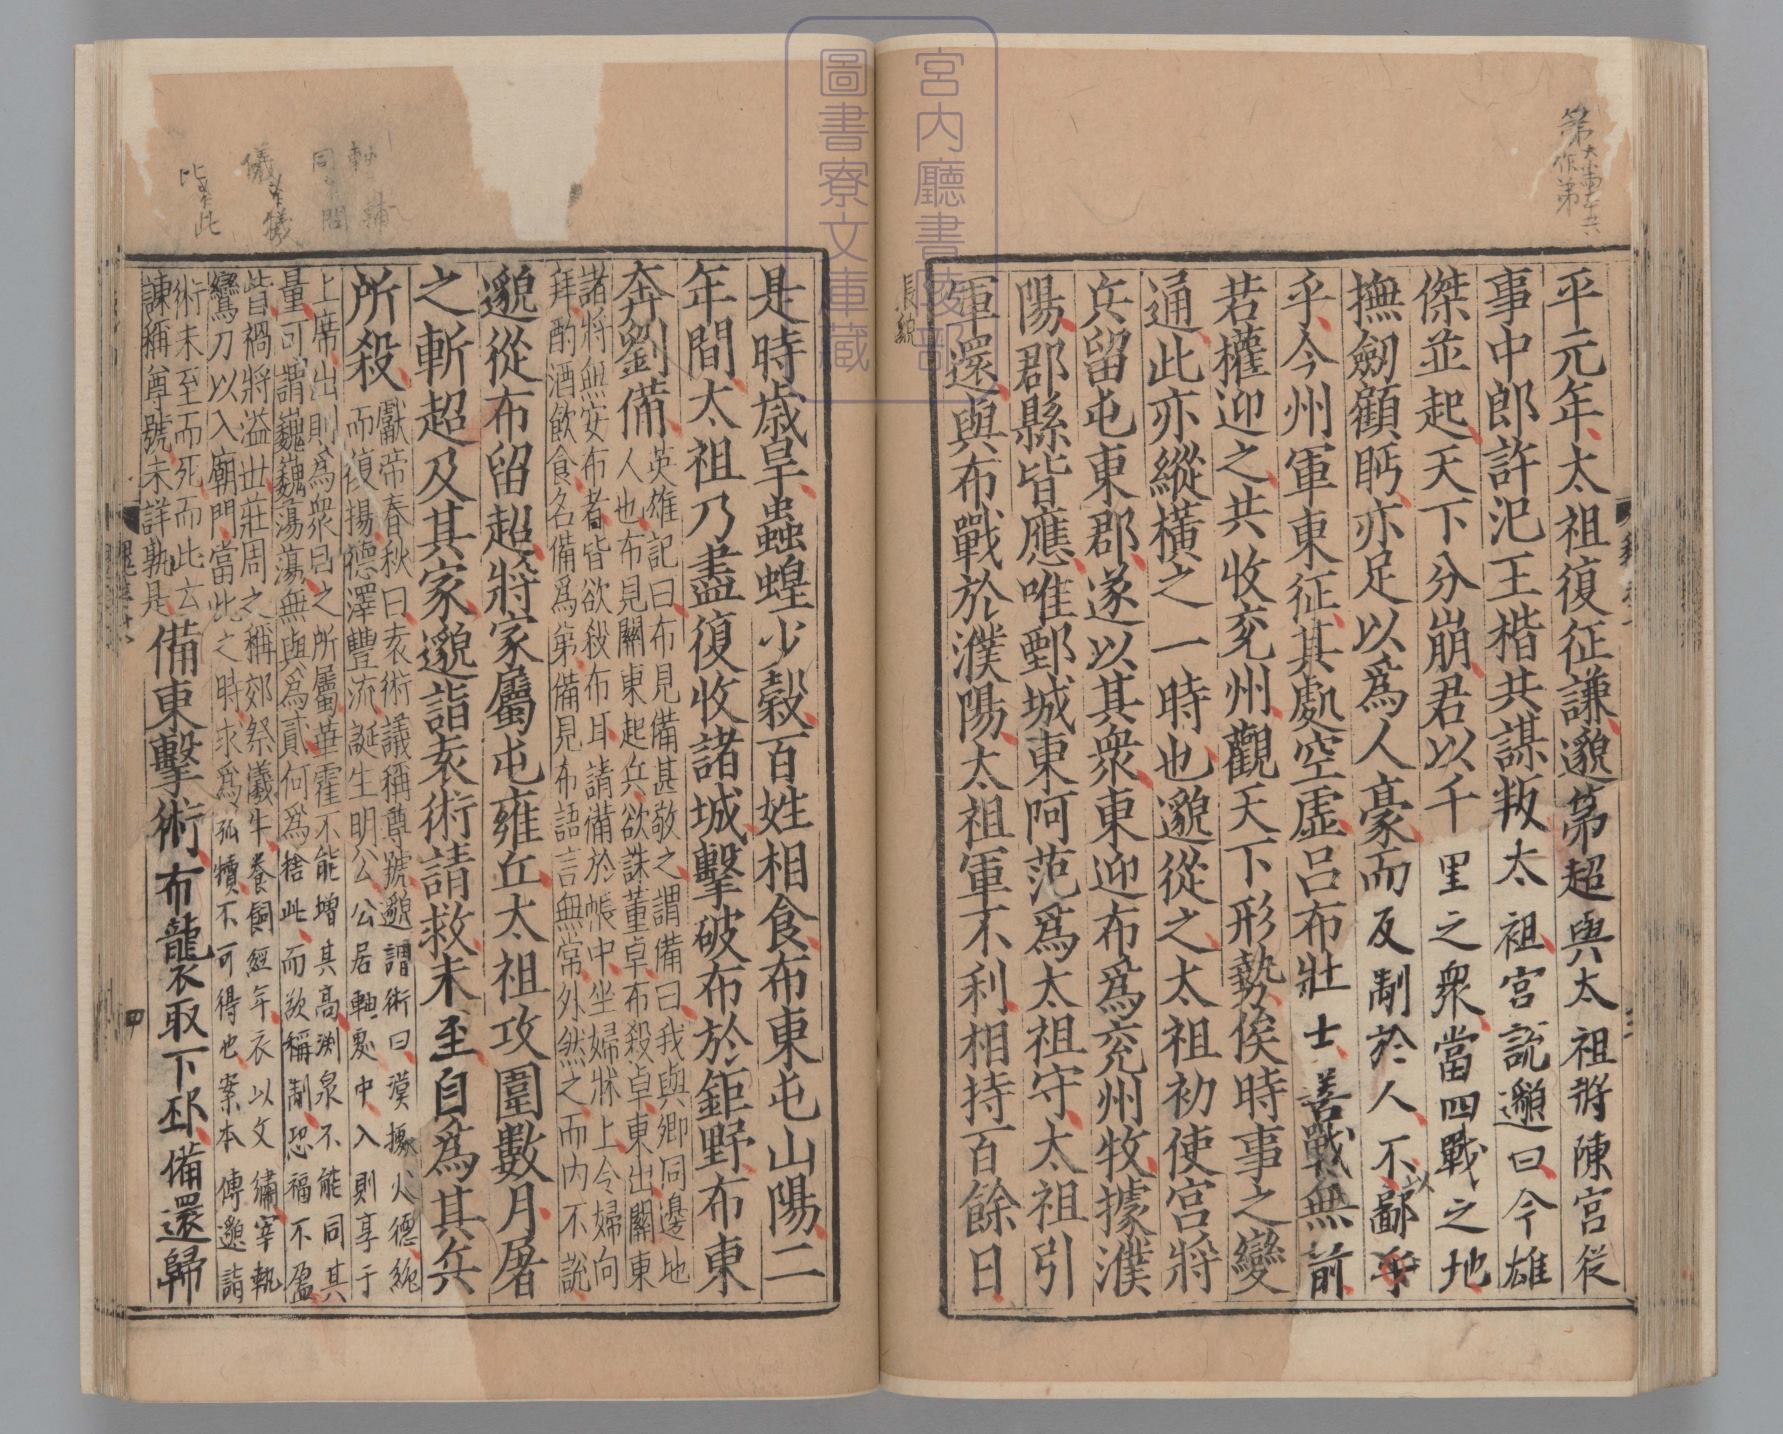 平元年太祖復征謙邈第超與太祖將陳宮從
事中郎許汜王楷共謀叛太祖宮説邈曰今雄
傑並起天下分崩君以千里之衆當四戰之地
撫劒顧眄亦足以爲人豪而反制於人不以鄙乎
乎今州軍東征其處空虛吕布壯士善戰無前
若權迎之共收兖州觀天下形勢俟時事之變
通此亦縱橫之一時也邈從之太祖初使宮將
兵留屯東郡遂以其衆東迎布爲兖州牧據濮
陽郡縣皆應唯鄄城東阿范爲太祖守太祖引
軍還與布戰於濮陽太祖軍不利相持百餘日
張邈
是時歳旱蟲蝗少穀百姓相食布東屯山陽二
年間太祖乃盡復收諸城擊破布於鉅野布東
奔劉備
英雄記曰布見備甚敬之謂備曰我與卿同邊地
人也布見關東起兵欲誅董卓布殺卓東出關東
諸將無安布者皆欲殺布耳請備於帳中坐婦牀上令婦向
拜酌酒飲食名備爲第備見布語言無常外然之而内不説
邈從布留超將家屬屯雍丘太祖攻圍數月屠
之斬超及其家邈詣袁術請救未至自爲其兵
所殺
獻帝春秋曰袁術議稱尊號邈謂術曰漢據火德絶
而復揚德澤豐流誕生明公公居軸處中入則享于
上席出則爲衆目之所屬華霍不能增其高淵泉不能同其
量可謂巍巍蕩蕩無與爲貳何爲捨此而欲稱制恐福不盈
眥禍將溢世莊周之稱郊祭犧牛養飼經年衣以文繡宰執
鸞刀以入廟門當此之時求爲孤犢不可得也案本傳邈詣
術未至而死而此云
諫稱尊號未詳孰是
備東擊術布襲取下邳備還歸
宮内廳書陵部
圖書寮文庫藏